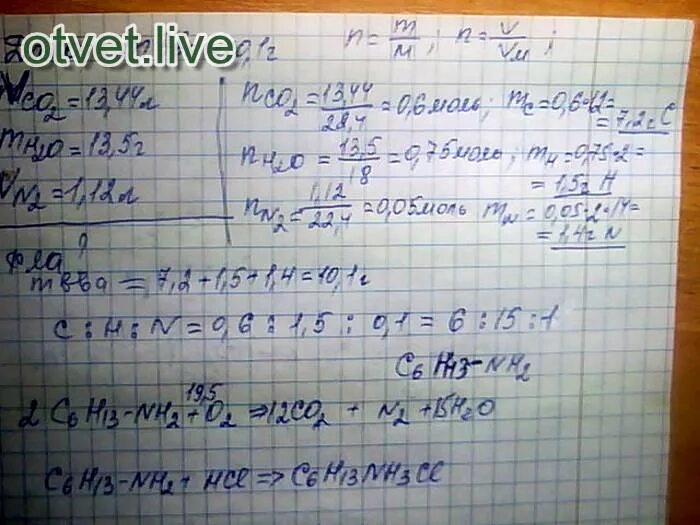 otvet.live
0,1г n = m/M ; n = V/Vм ;
VCO2 = 13,44л
mH2O = 13,5г
VN2 = 1,12л
nCO2 = 13,44/22,4 = 0,6 моль ; mC = 0,6·12 =
= 7,2г C
nH2O = 13,5/18 = 0,75 моль ; mH = 0,75·2 =
= 1,5г H
nN2 = 1,12/22,4 = 0,05 моль mN = 0,05·2·14 =
= 1,4г N
ф-ла ?
m в-ва = 7,2 + 1,5 + 1,4 = 10,1г
C : H : N = 0,6 : 1,5 : 0,1 = 6 : 15 : 1
C6H13-NH2
2 C6H13-NH2 + 19,5 O2 => 12CO2 + N2 + 15H2O
C6H13-NH2 + HCl => C6H13NH3Cl